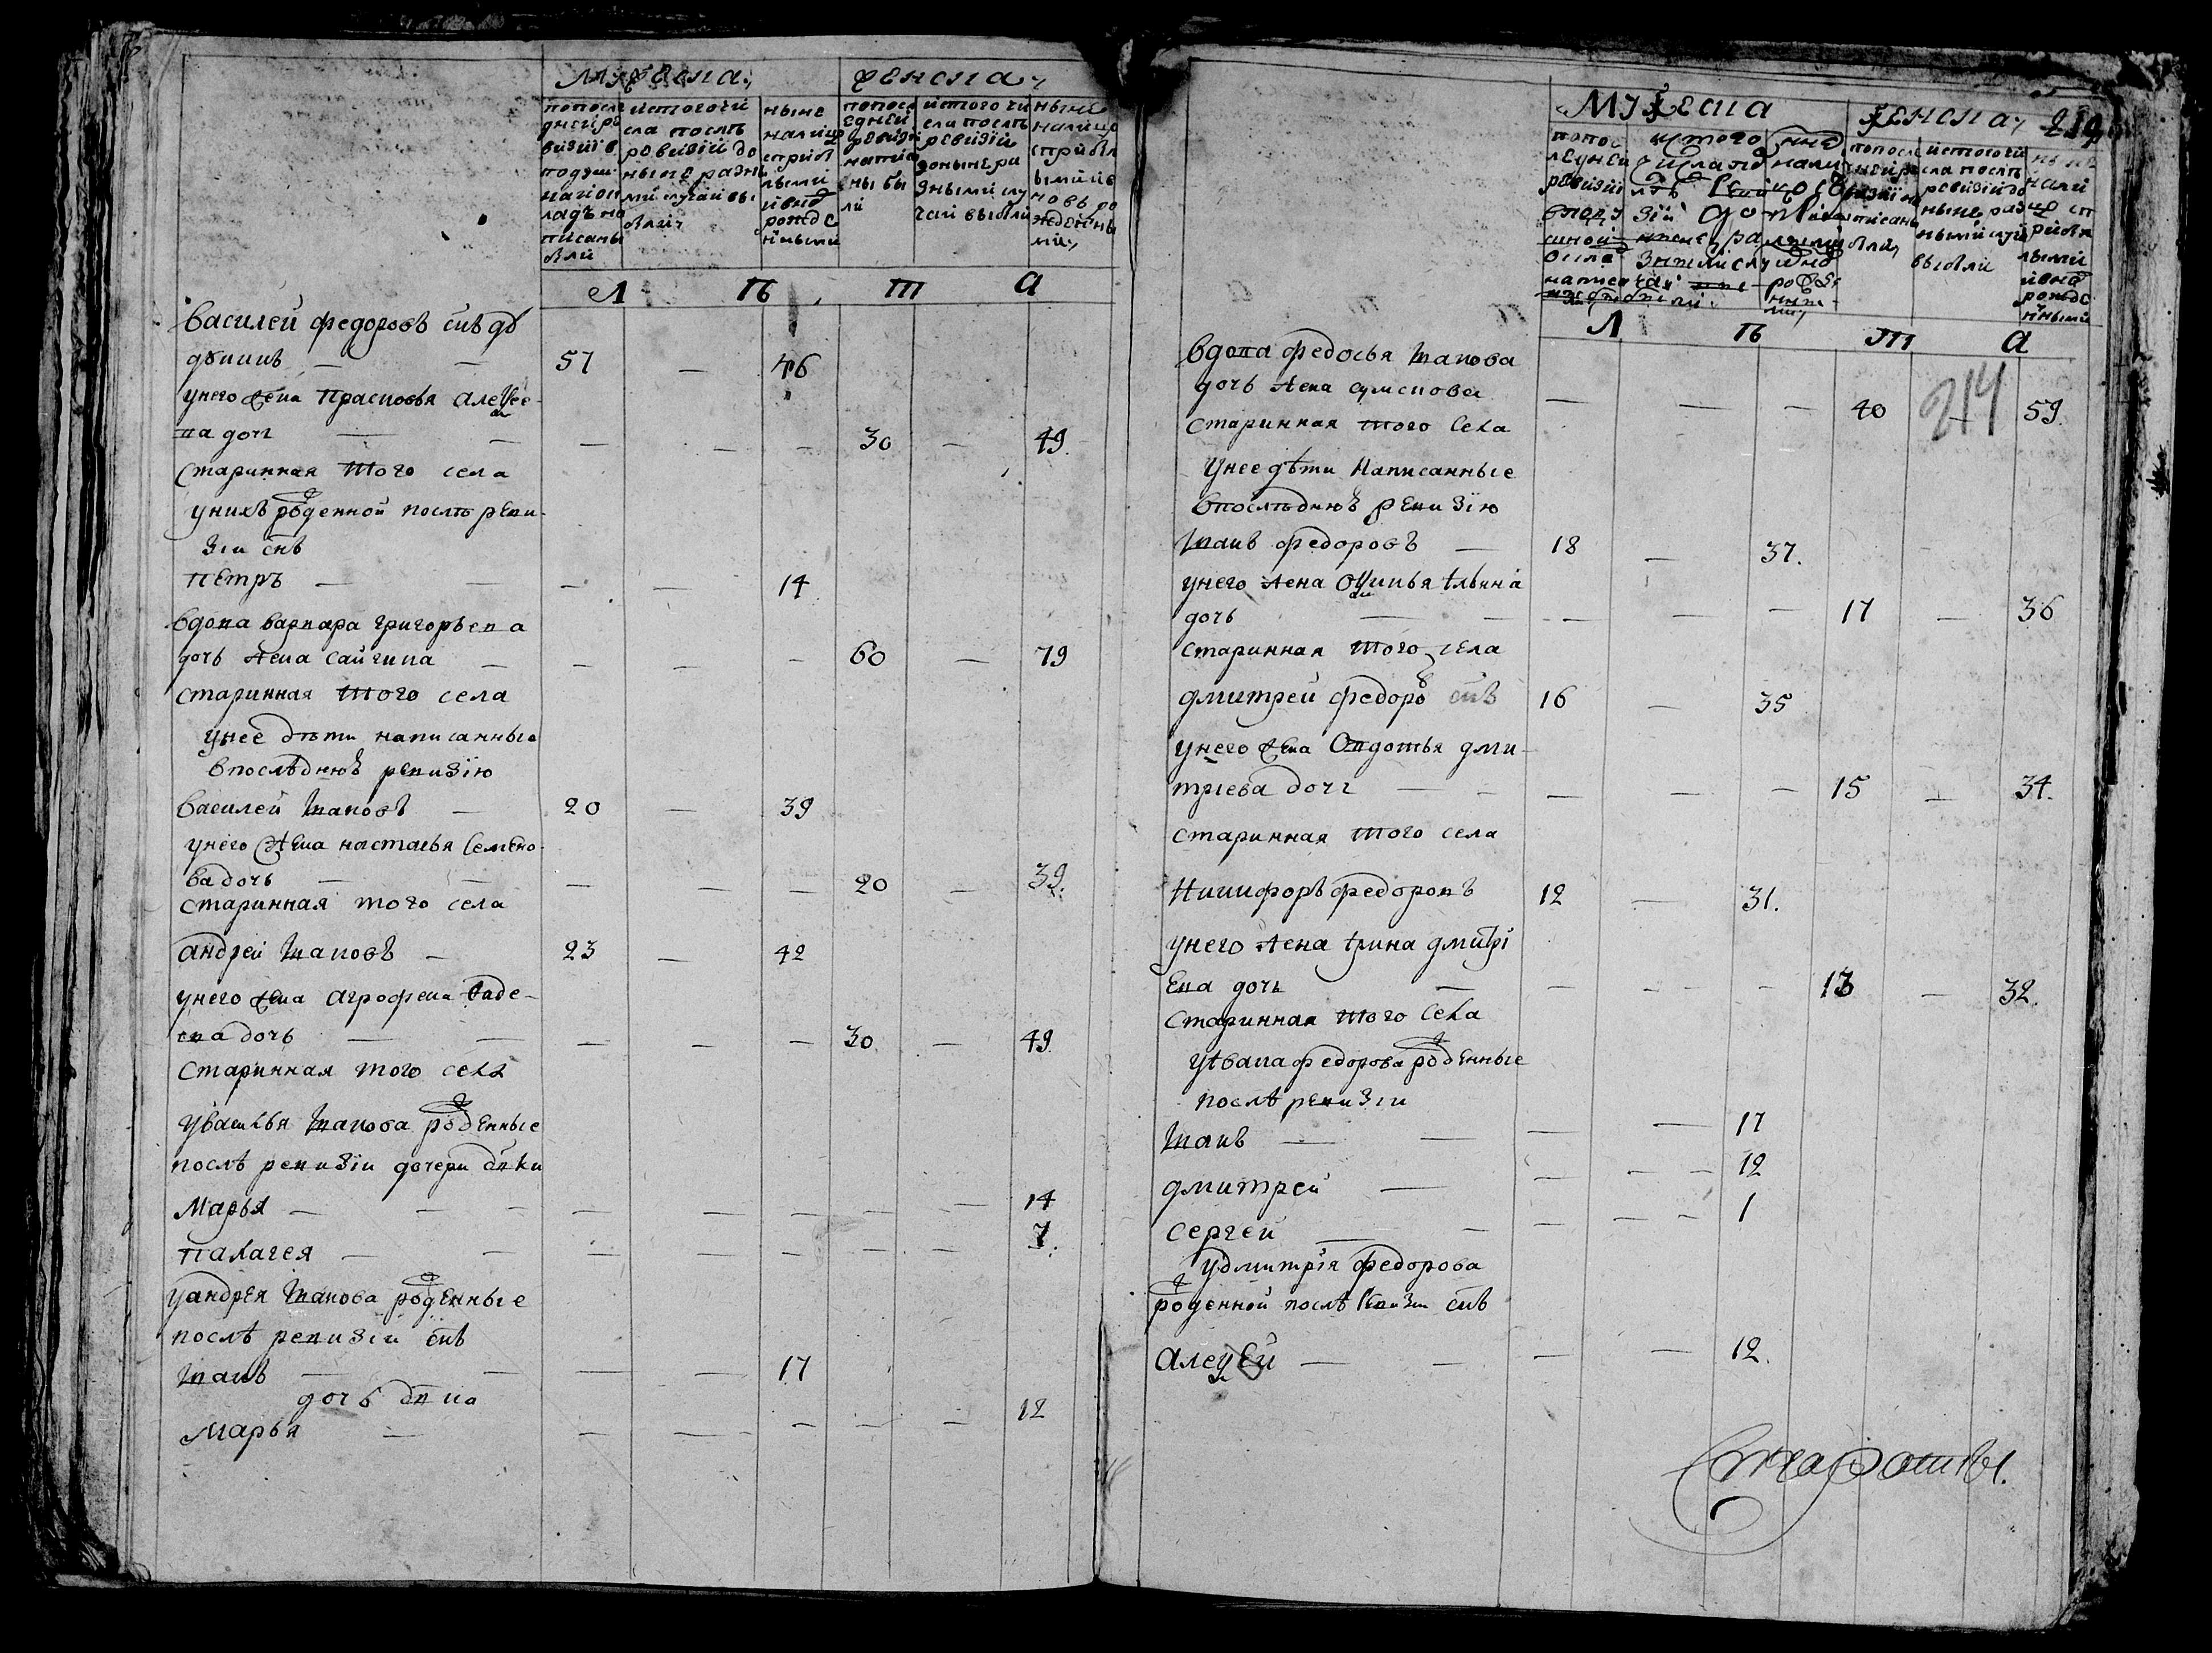 мужеска,
женска,
попосле
днейре
визіи в
подуш
писаны
были
истогочи
сла послѣ
ревизіи до
ныне разны
ми случаи вы
были
ныне
налицо
сприбы
лыми
ивно
рожде
ными
попосл
едней
ревизіи
напис
ны бы
ли
истого чи
сла послѣ
ревизіи
доныне ра
зными слу
чаи выбыли
ныне
налицо
сприбы
лыми ив
новь ро
жденны
ми,
Л Ѣ т а
Василей федоровъ снъ дѣ
57 — 46
унего жена Прасковья алеѯее
ва дочь — — — — — 30 — 49.
старинная того села
унихъ рожденной послѣ реви
зіи снъ
петръ — — — — 14
вдова варвара григорьева
дочь жена сайгина — — — — 60 — 79
старинная того села
унее дѣти написанные
впослѣднюю ревизію
василей ивановъ — 20 — 39
унего жена настасья семено
ва дочь — — — — — 20 — 39.
старинная того села
андрей ивановъ — 23 — 42
унего жена агрофена фаде
ева дочь — — — — — 30. — 49
старинная того села
уВасилья иванова рожденные
послѣ ревизіи дочери дѣвки
Марья — — — — — — — — — 14
палагея — — — — — — — — 7.
уандрея иванова рожденные
послѣ ревизіи снъ
иванъ — — — — 17
дочь дѣвка
марья — — — — — — 12
мужеска
женска,
219
214
попос
леднеи
ревизіи
вподу
шной
написа
истого
числа по
слѣ реви
зіи до н
разными
ныне
нали
попосле
дней ре
визіи на
писаны
были,
истогочи
сла послѣ
ревизіи до
ныне раз
ными случ
выбыли
нынѣ
нали
цо сп
рибы
лыми
ивно
рожде
нными
Л Ѣ т а
вдова федосья иванова
дочь жена
— — — 40 — 59.
старинная того села
унее дѣти написанные
впослѣднюю ревизію
иванъ федоровъ — 18 — 37.
унего жена Ѯинья ильина
дочь — — — — — 17 — 36
старинная того села
дмитрей федоровъ снъ 16 — 35
унего жена Овдотья дми
тріева дочь — — — — — 15 — 34.
старинная того села
Никифоръ федоровъ 12 — 31.
унего жена ирина дмитрі
ева дочь — — — — 13 — 32.
старинная того села
уИвана федорова рожденные
послѣ ревизіи
иванъ — — — — 17
дмитрей — — — — 12
сергей — — — — — 1
удмитрія федорова
рожденной послѣ ревизіи снъ
алеѯей — — — — 12.